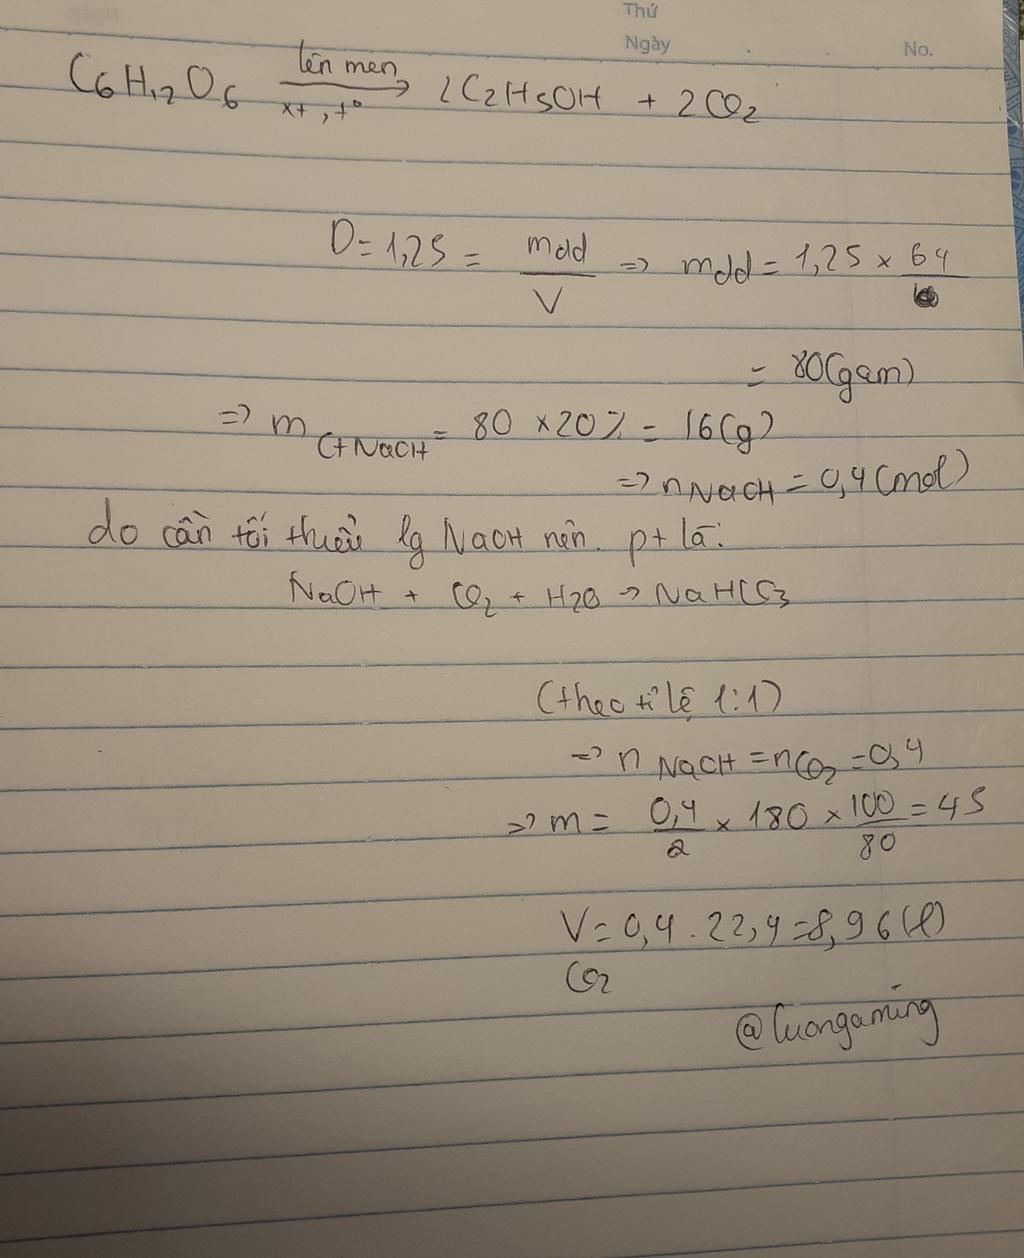 Thứ
Ngày . . No.
C6H12O6 lên men → 2C2H5OH + 2CO2
xt, t°
D = 1,25 = mdd / V => mdd = 1,25 × 64
= 80(gam)
=> m ctNaOH = 80 × 20% = 16(g)
=> nNaOH = 0,4 (mol)
do cần tối thiểu lg NaOH nên. pt là:
NaOH + CO2 + H2O → NaHCO3
(theo tỉ lệ 1:1)
=> n NaOH = nCO2 = 0,4
=> m = 0,4 / 2 × 180 × 100 / 80 = 45
V CO2 = 0,4 . 22,4 = 8,96 (l)